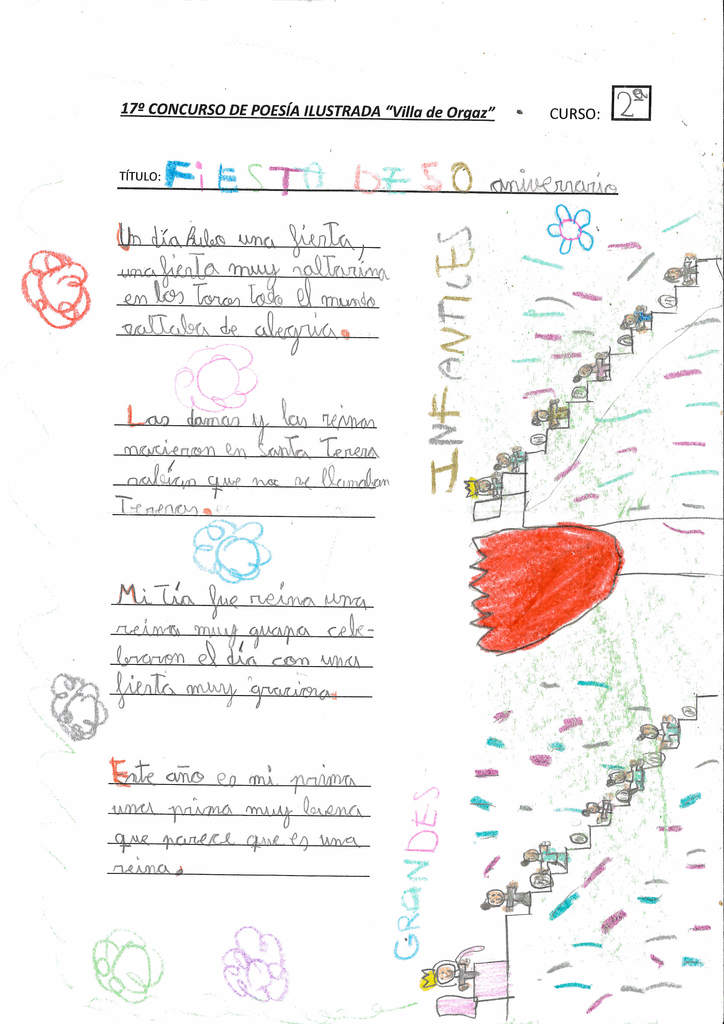 17º CONCURSO DE POESÍA ILUSTRADA “Villa de Orgaz” - CURSO: 2º
TÍTULO: FIESTA DE 50 aniversario
Un día hubo una fiesta,
una fiesta muy saltarina
en los toros todo el mundo
saltaba de alegría.
Las damas y las reinas
nacieron en Santa Teresa
sabían que no se llamaban
Teresas.
Mi tía fue reina una
reina muy guapa cele-
braron el día con una
fiesta muy graciosa.
Este año es mi prima
una prima muy buena
que parece que es una
reina.
INFANTILES
GRANDES